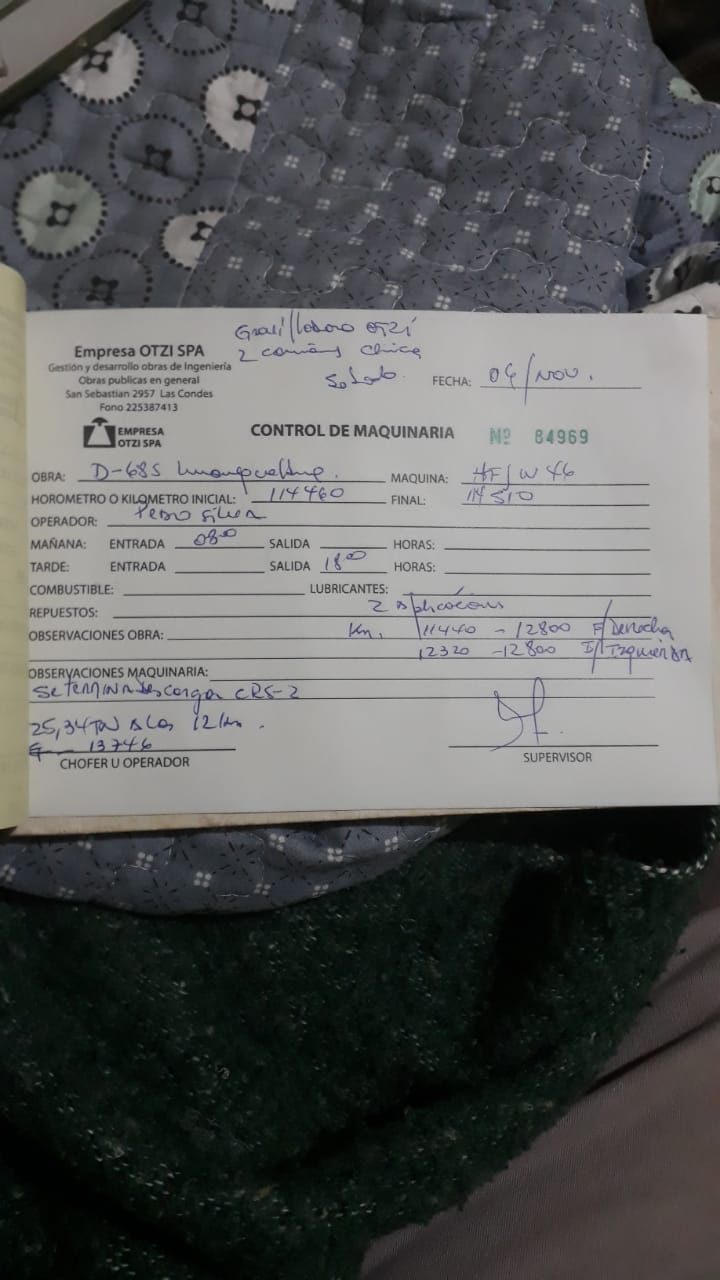 Gravilladora OTZI
2 camiones chica
Solado.
Empresa OTZI SPA
Gestión y desarrollo obras de Ingeniería
Obras publicas en general
San Sebastian 2957 Las Condes
Fono 225387413
FECHA: 04/NOV.
EMPRESA
OTZI SPA
CONTROL DE MAQUINARIA Nº 84969
OBRA: D-685 MAQUINA: HF/W 46
HOROMETRO O KILOMETRO INICIAL: 114460 FINAL: 114510
OPERADOR: Pedro Silva
MAÑANA: ENTRADA 08:00 SALIDA HORAS:
TARDE: ENTRADA SALIDA 18:00 HORAS:
COMBUSTIBLE: LUBRICANTES:
REPUESTOS: 2 Aplicaciones
OBSERVACIONES OBRA: Km. 11440 - 12800 F/Derecha
12320 - 12800 I/Izquierda
OBSERVACIONES MAQUINARIA:
Se termina descarga CRS-2
25,34 TN a las 12 hrs.
13746
CHOFER U OPERADOR SUPERVISOR